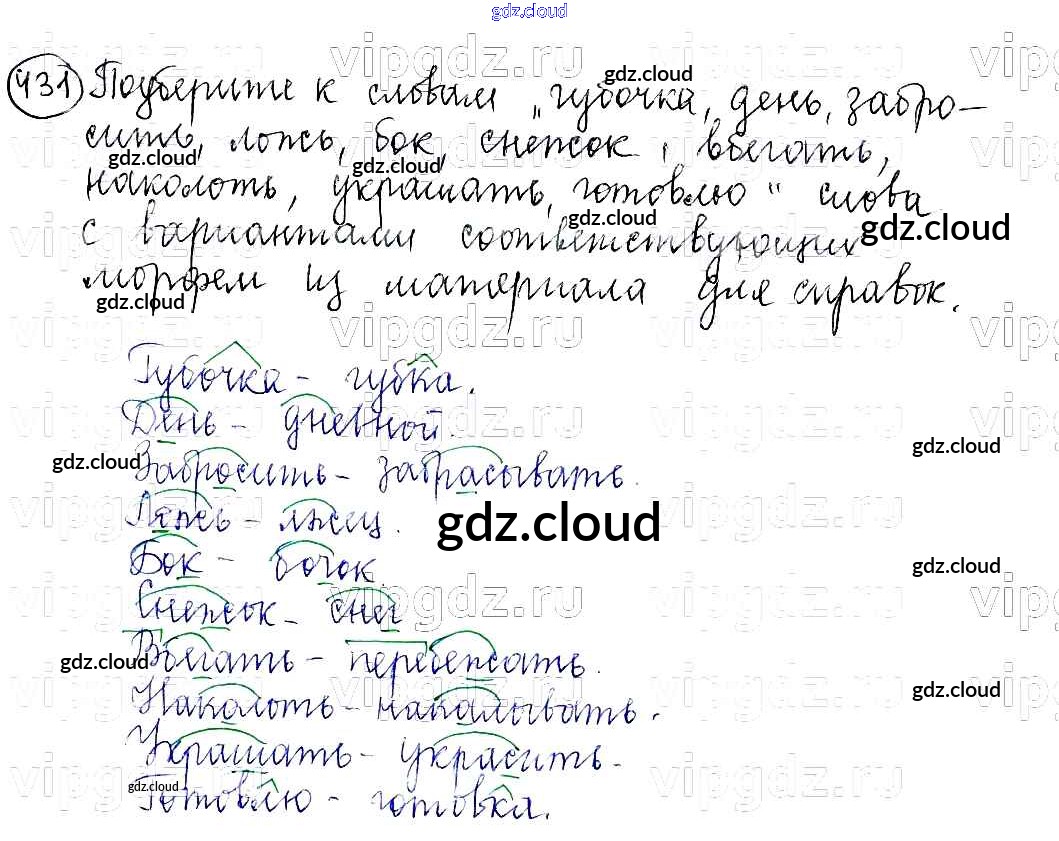 gdz.cloud
431 Подберите к словам „губочка, день, забро-
сить, ложь, бок, снежок, вбегать,
наколоть, украшать, готовлю" слова
с вариантами соответствующих
морфем из материала для справок.
Губочка - губка.
День - дневной.
Забросить - забрасывать.
Ложь - лжец.
Бок - бочок.
Снежок - снег
Вбегать - перебежать.
Наколоть - накалывать.
Украшать - украсить.
Готовлю - готовка.
gdz.cloud
vipgdz.ru